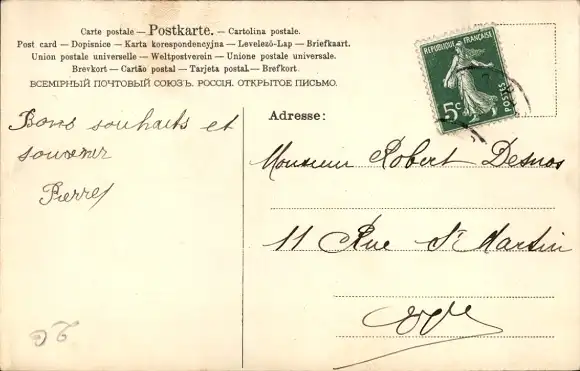 Carte postale — Postkarte. — Cartolina postale.
Post card — Dopisnice — Karta korespondencyjna — Levelező-Lap — Briefkaart.
Union postale universelle — Weltpostverein — Unione postale universale.
Brevkort — Cartão postal — Tarjeta postal — Brefkort.
ВСЕМІРНЫЙ ПОЧТОВЫЙ СОЮЗЪ. РОССІЯ. ОТКРЫТОЕ ПИСЬМО.
RÉPUBLIQUE FRANÇAISE
5c
POSTES
Adresse:
Bons souhaits et
souvenir
Pierre
Monsieur Robert Desnos
11 Rue St Martin